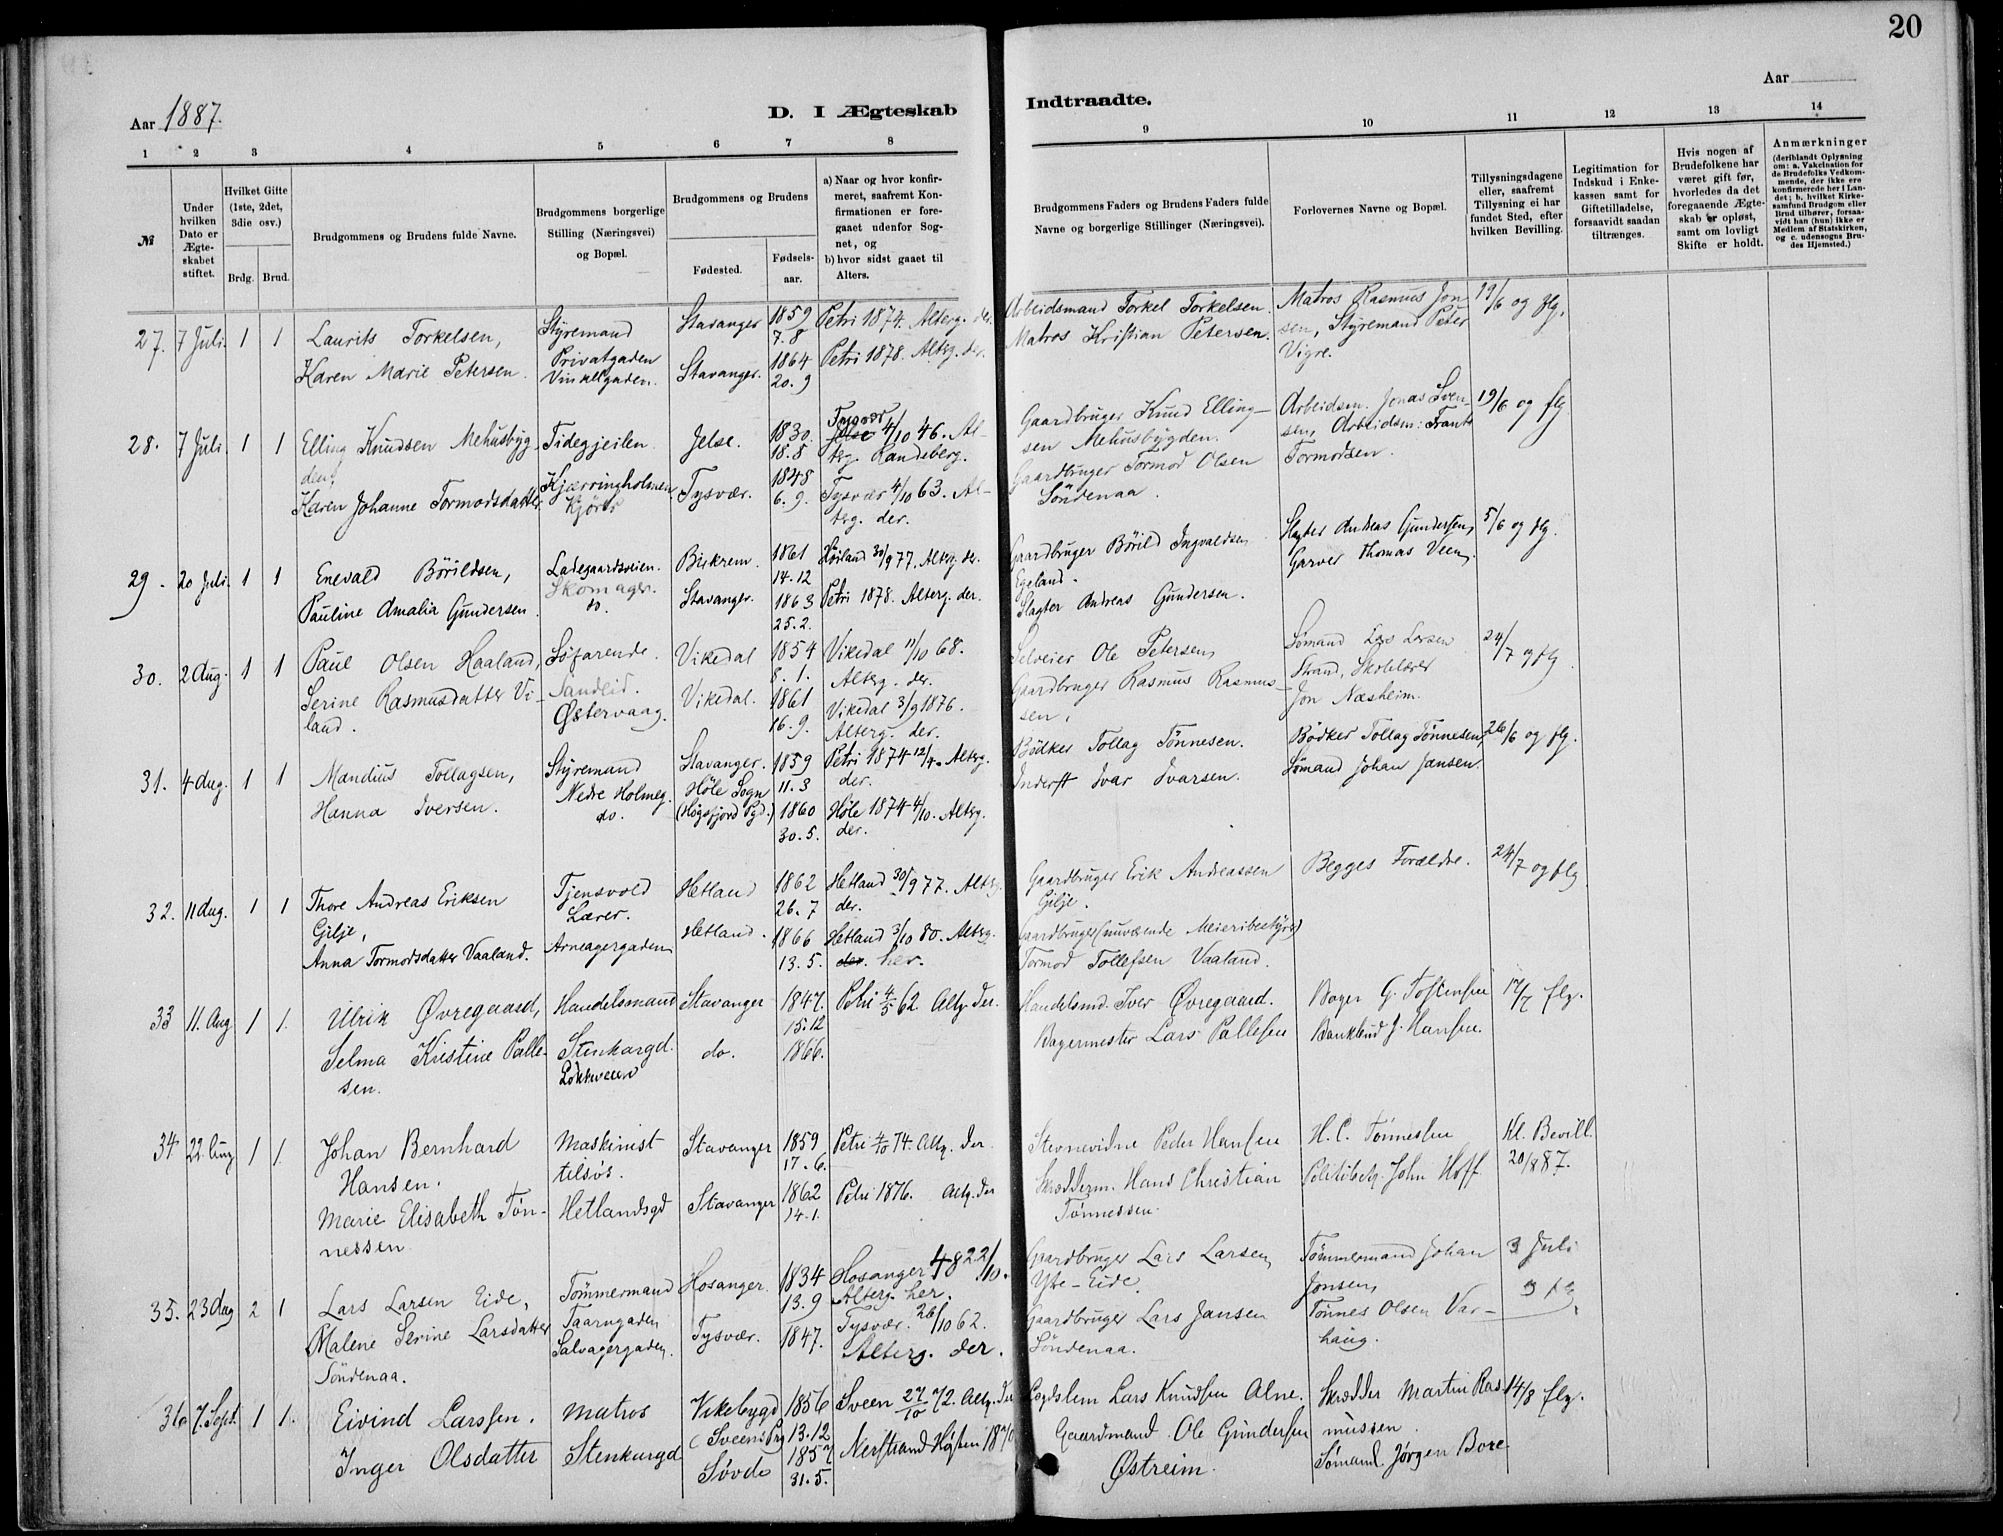 20
Aar 1887.
D. I Ægteskab
Indtraadte.
Aar
1 2 3 4 5 6 7 8 9 10 11 12 13 14
№
Under hvilken Dato er Ægteskabet stiftet.
Hvilket Gifte (1ste, 2det, 3die osv.)
Brdg. Brud.
Brudgommens og Brudens fulde Navne.
Brudgommens borgerlige Stilling (Næringsvei) og Bopæl.
Brudgommens og Brudens
Fødested.
Fødselsaar.
a) Naar og hvor konfirmeret, saafremt Konfirmationen er foregaaet udenfor Sognet, og
b) hvor sidst gaaet til Alters.
Brudgommens Faders og Brudens Faders fulde Navne og borgerlige Stillinger (Næringsvei).
Forlovernes Navne og Bopæl.
Tillysningsdagene eller, saafremt Tillysning ei har fundet Sted, efter hvilken Bevilling.
Legitimation for Indskud i Enkekassen samt for Giftetilladelse, forsaavidt saadan tiltrænges.
Hvis nogen af Brudefolkene har været gift før, hvorledes da det foregaaende Ægteskab er opløst, samt om lovligt Skifte er holdt.
Anmærkninger
(deriblandt Oplysning om: a. Vakcination for de Brudefolks Vedkommende, der ikke ere konfirmerede her i Landet; b. hvilket Kirkesamfund Brudgom eller Brud tilhører, forsaavidt han (hun) ikke er Medlem af Statskirken, og c. udensogns Brudes Hjemsted.)
27. 7 Juli. 1 1 Laurits Torkelsen, Styremand Privatgaden Stavanger 1859 7.8 Petri 1874. Alterg. der. Arbeidsmand Torkel Torkelsen. Matros Rasmus Jonsen, Styremand Peter Vigre. 19/6 og flg.
Karen Marie Petersen. Vinkelgaden. Stavanger. 1864 20.9 Petri 1878. Alterg. der. Matros Kristian Petersen.
28. 7 Juli. 1 1 Elling Knudsen Mehusbygden, Tidegjeilen. Jelse. 1830. 18.8 Tysvær 4/10 46. Alterg. Randeberg. Gaardbruger Knud Ellingsen Mehusbygden. Arbeidsm. Jonas Svensen, Arbeidsm: Frants Tormodsen. 19/6 og flg
Karen Johanne Tormodsdatter Kjærringholmen Tysvær. 1848 6.9. Tysvær 4/10 63. Alterg. der. Gaardbruger Tormod Olsen Söndenaa.
29. 20 Juli. 1 1 Enevald Börildsen, Ladegaardsveien. Skomager. Birkrem. 1861 14.12 Höiland 30/9 77. Alterg. der. Gaardbruger Börild Ingvaldsen Egeland. Slagter Andreas Gundersen, Garver Thomas Veen. 5/6 og flg.
Pauline Amalia Gundersen do. Stavanger. 1863 25.2. Petri 1878. Alterg. der. Slagter Andreas Gundersen.
30. 2 Aug. 1 1 Paul Olsen Haaland, Søfarende. Sandeid. Vikedal 1854 8.1. Vikedal 11/10 68. Alterg. der. Selveier Ole Petersen, Sømand Lars Larsen Strand, Skolelærer Jon Næsheim. 24/7 og flg.
Serine Rasmusdatter Viland. Østervaag. Vikedal. 1861 16.9. Vikedal 3/9 1876. Alterg. der. Gaardbruger Rasmus Rasmussen,
31. 4 Aug. 1 1 Mandius Tollagsen, Styremand Nedre Holmeg. Stavanger. 1859 11.3 Petri 1874 12/4. Alterg. der. Bödker Tollag Tönnesen. Bødker Tollag Tönnesen, Sømand Johan Jansen. 26/6 og flg.
Hanna Iversen. do. Höle Sogn (Høgsfjord Pgd.) 1860 30.5. Høle 1874 4/10. Alterg. der. Inderst Ivar Ivarsen.
32. 11 Aug. 1 1 Thore Andreas Eriksen Gilje, Tjensvold Lærer. Hetland 1862 26.7 Hetland 30/9 77. Alterg. der. Gaardbruger Erik Andreassen Gilje. Begges Forældre. 24/7 og flg
Anna Tormodsdatter Vaaland. Arneagergaden Hetland. 1866 13.5. Hetland 3/10 80. Alterg. der. her. Gaardbruger (nuværende Meieribestyrer) Tormod Tollefsen Vaaland.
33 11. Aug 1 1. Ulrik Øvregaard, Handelsmand Stenkargd. Stavanger 1847. 15.12 Petri 4/5 62. Altg. der. Handelsmd. Iver Øvregaard. Bager G. Tostensen Bankbud J. Hansen. 17/7 flg.
Selma Kristine Pallesen. Løkkeveien do. 1866. Bagermester Lars Pallesen
34 22. Aug 1 1. Johan Bernhard Hansen. Maskinist tilsøs. Stavanger 1859 17.6. Petri 4/10 74. Altg. der Stevnevidne Peder Hansen H. C. Tönnessen Politibetj. John Hoff. Kl. Bevill. 20/8 87.
Marie Elisabeth Tönnessen Hetlandsgd Stavanger 1862 14.1. Petri 1876. Altg. der Skrædderm. Hans Christian Tønnessen.
35. 23 Aug 2 1 Lars Larsen Eide, Tömmermand Taarngaden Hosanger. 1834 13.9 Hosanger 48 22/10. Alterg. her. Gaardbruger Lars Larsen Yte-Eide. Tømmermand Johan Jonsen, Tönnes Olsen Varhaug. 3 Juli og flg.
Malene Serine Larsdatter Söndenaa. Salvagergaden. Tysvær. 1847. Tysvær. 26/10 62. Alterg. der. Gaardbruger Lars Jansen Söndenaa.
36 7. Sept. 1 1. Eivind Larssen. Matros Vikebygd (Sveens Prg) 1856 13.12 Sveen 27/10 72. Altg. der Lægdslem Lars Knudsen Alne. Skrædder Martin Rasmussen. Sømand Jørgen Bore. 14/8 flg.
Inger Olsdatter Stenkargd Søvde 1857 31.5. Nerstrand Høsten 1871 Gaardmand Ole Gundersen Østreim.